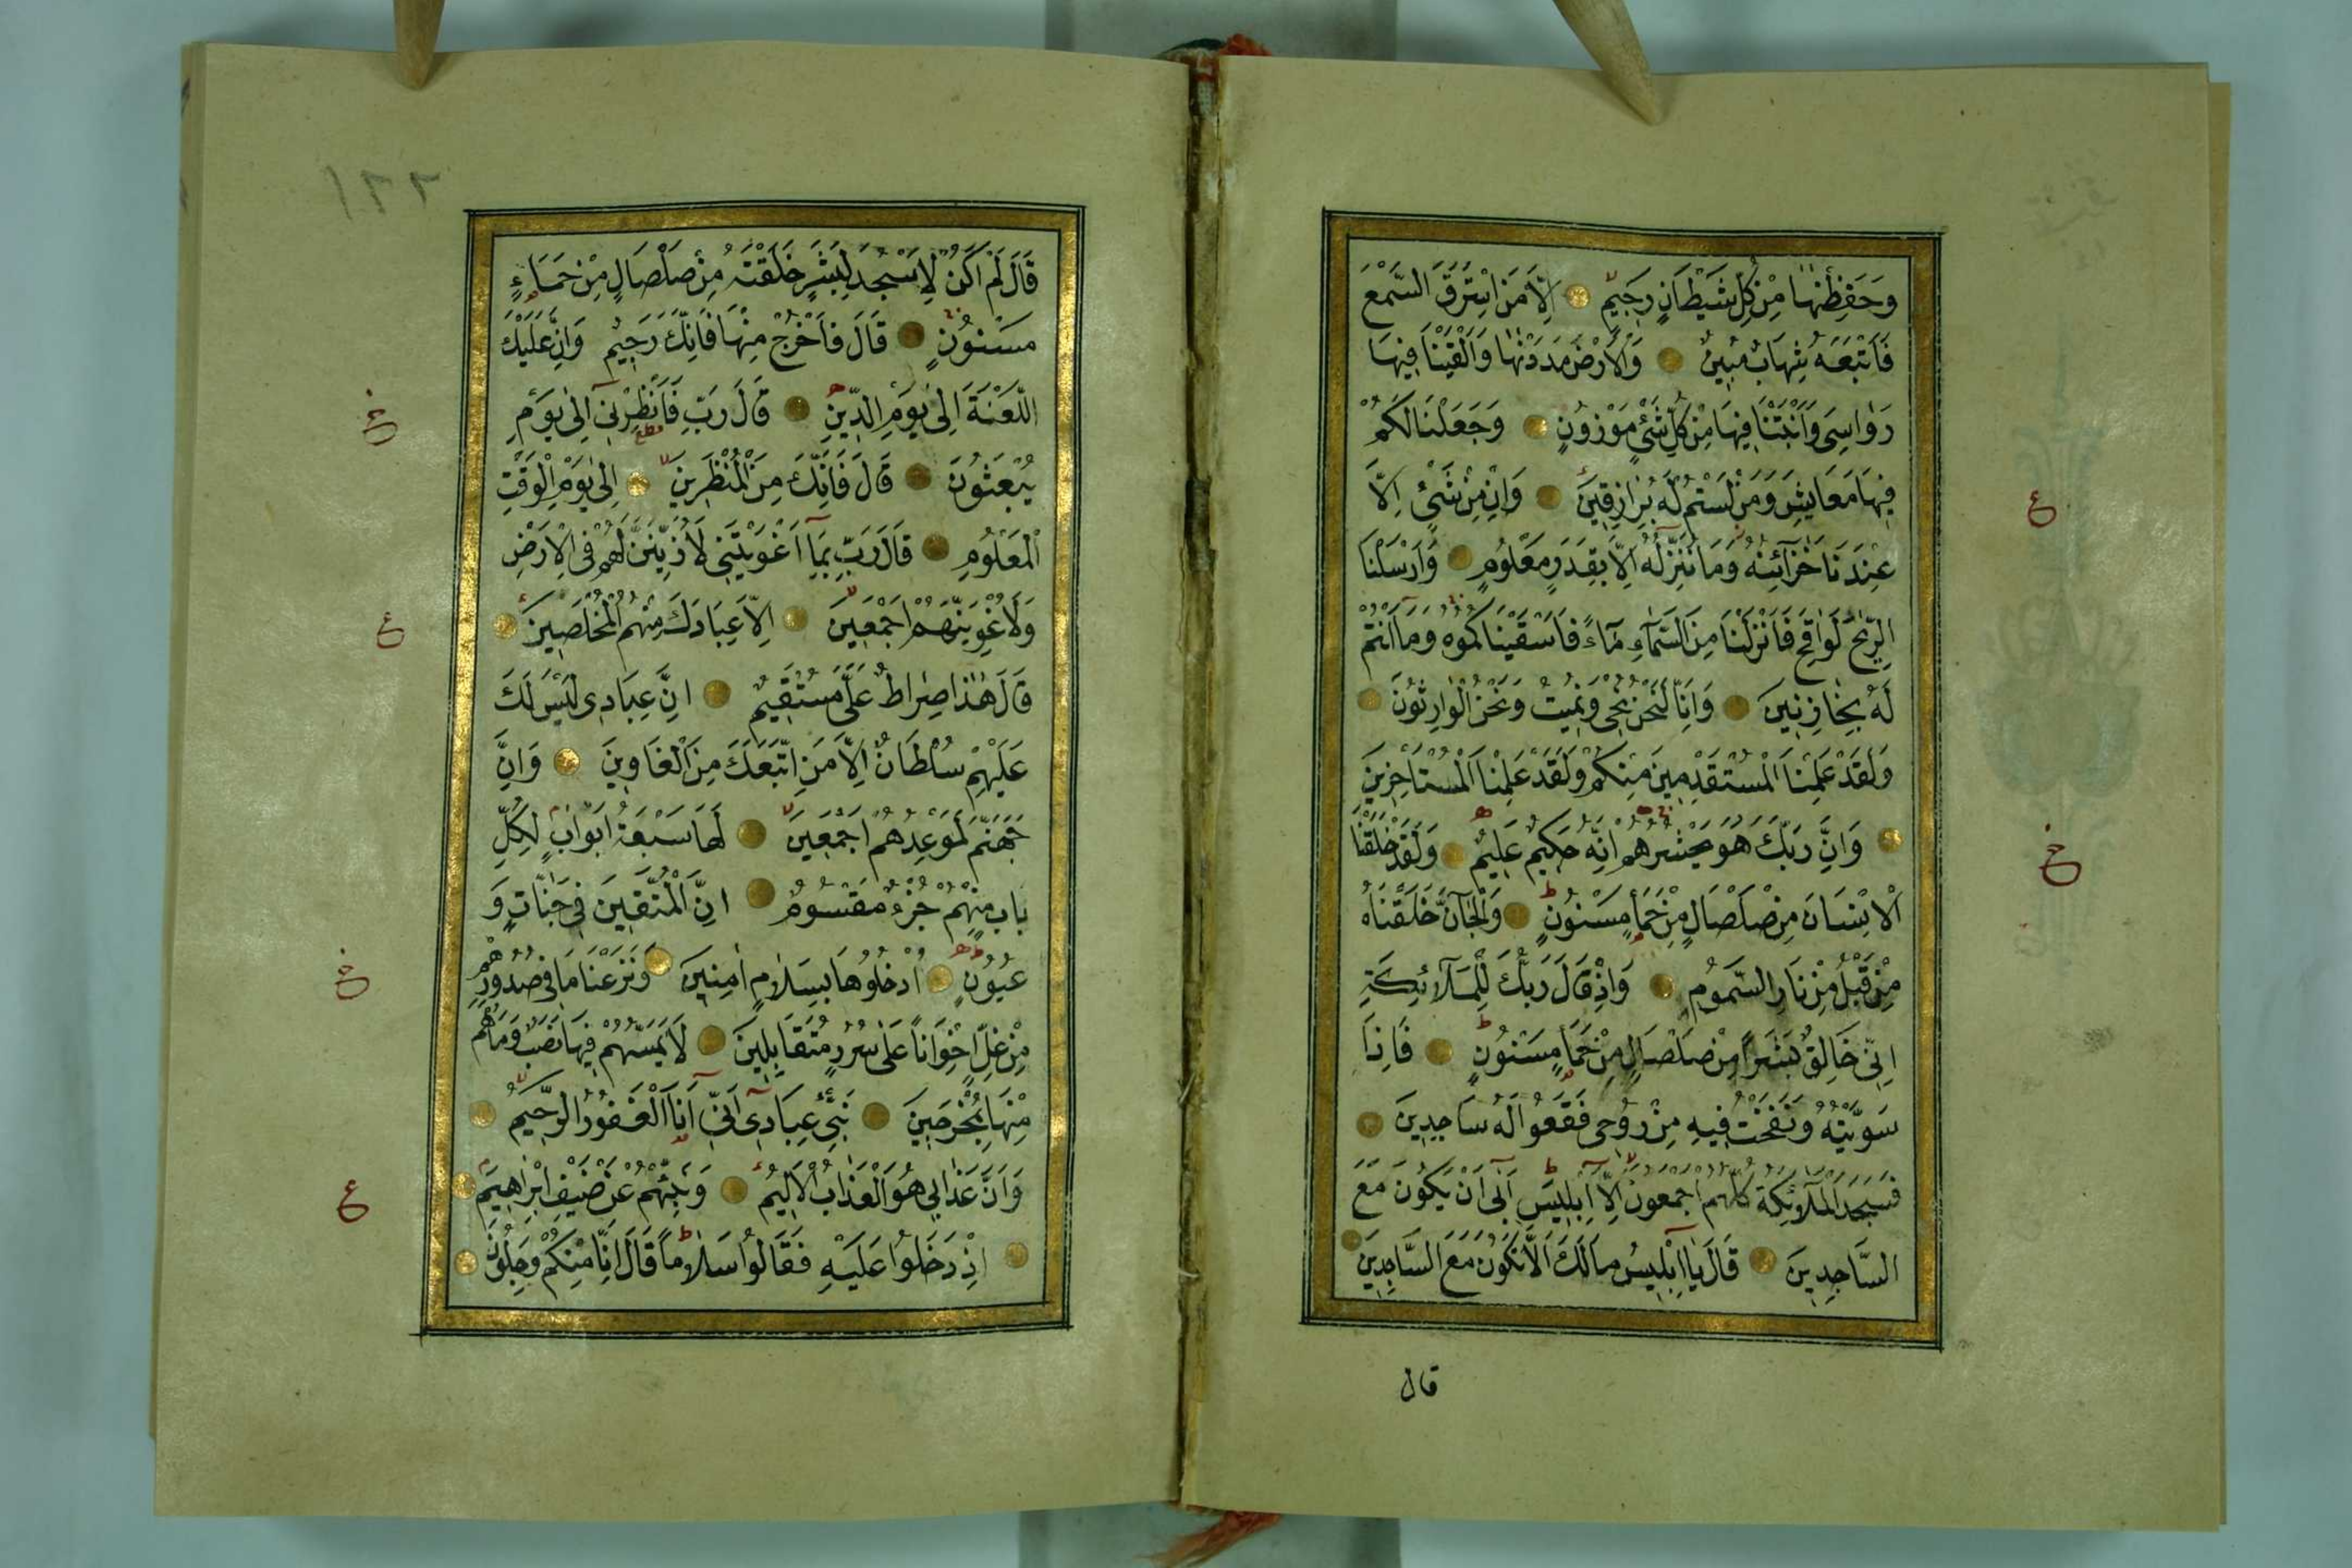 وَحَفِظْنٰهَا مِنْ كُلِّ شَيْطَانٍ رَجِيمٍ اِلَّا مَنِ اسْتَرَقَ السَّمْعَ
فَاَتْبَعَهُ شِهَابٌ مُبِينٌ وَالْاَرْضَ مَدَدْنٰهَا وَاَلْقَيْنَا فِيهَا
رَوٰاسِىَ وَاَنْبَتْنَا فِيهَا مِنْ كُلِّ شَىْءٍ مَوْزُونٍ وَجَعَلْنَا لَكُمْ
فِيهَا مَعَايِشَ وَمَنْ لَسْتُمْ لَهُ بِرَازِقِينَ وَاِنْ مِنْ شَىْءٍ اِلَّا
عِنْدَنَا خَزَآئِنُهُ وَمَا نُنَزِّلُهُ اِلَّا بِقَدَرٍ مَعْلُومٍ وَاَرْسَلْنَا
الرِّيٰحَ لَوَاقِحَ فَاَنْزَلْنَا مِنَ السَّمَآءِ مَآءً فَاَسْقَيْنَاكُمُوهُ وَمَا اَنْتُمْ
لَهُ بِخَازِنِينَ وَاِنَّا لَنَحْنُ نُحْيِى وَنُمِيتُ وَنَحْنُ الْوَارِثُونَ
وَلَقَدْ عَلِمْنَا الْمُسْتَقْدِمِينَ مِنْكُمْ وَلَقَدْ عَلِمْنَا الْمُسْتَاْخِرِينَ
وَاِنَّ رَبَّكَ هُوَ يَحْشُرُهُمْ اِنَّهُ حَكِيمٌ عَلِيمٌ وَلَقَدْ خَلَقْنَا
الْاِنْسَانَ مِنْ صَلْصَالٍ مِنْ حَمَأٍ مَسْنُونٍ وَالْجَآنَّ خَلَقْنَاهُ
مِنْ قَبْلُ مِنْ نَارِ السَّمُومِ وَاِذْ قَالَ رَبُّكَ لِلْمَلَآئِكَةِ
اِنِّى خَالِقٌ بَشَرًا مِنْ صَلْصَالٍ مِنْ حَمَأٍ مَسْنُونٍ فَاِذَا
سَوَّيْتُهُ وَنَفَخْتُ فِيهِ مِنْ رُوحِى فَقَعُوا لَهُ سَاجِدِينَ
فَسَجَدَ الْمَلَآئِكَةُ كُلُّهُمْ اَجْمَعُونَ اِلَّا اِبْلِيسَ اَبٰى اَنْ يَكُونَ مَعَ
السَّاجِدِينَ قَالَ يَا اِبْلِيسُ مَا لَكَ اَلَّا تَكُونَ مَعَ السَّاجِدِينَ
قال
ع
خ
١٢٢
قَالَ لَمْ اَكُنْ لِاَسْجُدَ لِبَشَرٍ خَلَقْتَهُ مِنْ صَلْصَالٍ مِنْ حَمَاءٍ
مَسْنُونٍ قَالَ فَاخْرُجْ مِنْهَا فَاِنَّكَ رَجِيمٌ وَاِنَّ عَلَيْكَ
اللَّعْنَةَ اِلٰى يَوْمِ الدِّينِ قَالَ رَبِّ فَاَنْظِرْنِى اِلٰى يَوْمِ
يُبْعَثُونَ قَالَ فَاِنَّكَ مِنَ الْمُنْظَرِينَ اِلٰى يَوْمِ الْوَقْتِ
الْمَعْلُومِ قَالَ رَبِّ بِمَا اَغْوَيْتَنِى لَاُزَيِّنَنَّ لَهُمْ فِى الْاَرْضِ
وَلَاُغْوِيَنَّهُمْ اَجْمَعِينَ اِلَّا عِبَادَكَ مِنْهُمُ الْمُخْلَصِينَ
قَالَ هٰذَا صِرَاطٌ عَلَىَّ مُسْتَقِيمٌ اِنَّ عِبَادِى لَيْسَ لَكَ
عَلَيْهِمْ سُلْطَانٌ اِلَّا مَنِ اتَّبَعَكَ مِنَ الْغَاوِينَ وَاِنَّ
جَهَنَّمَ لَمَوْعِدُهُمْ اَجْمَعِينَ لَهَا سَبْعَةُ اَبْوَابٍ لِكُلِّ
بَابٍ مِنْهُمْ جُزْءٌ مَقْسُومٌ اِنَّ الْمُتَّقِينَ فِى جَنَّاتٍ وَ
عُيُونٍ اُدْخُلُوهَا بِسَلَامٍ اٰمِنِينَ وَنَزَعْنَا مَا فِى صُدُورِهِمْ
مِنْ غِلٍّ اِخْوَانًا عَلٰى سُرُرٍ مُتَقَابِلِينَ لَا يَمَسُّهُمْ فِيهَا نَصَبٌ وَمَا هُمْ
مِنْهَا بِمُخْرَجِينَ نَبِّئْ عِبَادِى اَنِّى اَنَا الْغَفُورُ الرَّحِيمُ
وَاَنَّ عَذَابِى هُوَ الْعَذَابُ الْاَلِيمُ وَنَبِّئْهُمْ عَنْ ضَيْفِ اِبْرٰاهِيمَ
اِذْ دَخَلُوا عَلَيْهِ فَقَالُوا سَلَامًا قَالَ اِنَّا مِنْكُمْ وَجِلُونَ
خ
ع
خ
ع